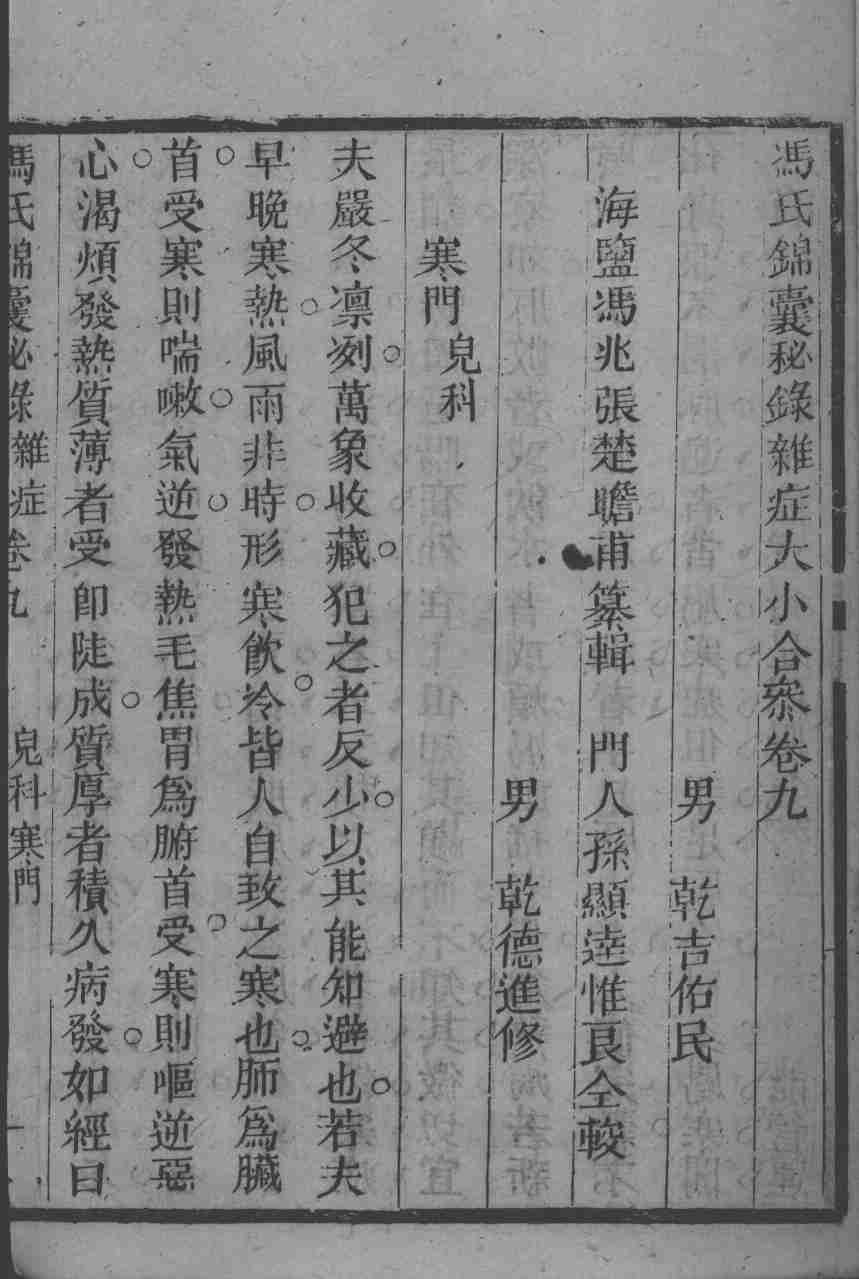 馮氏錦囊秘錄雜症大小合叅卷九
男　乾吉佑民
海鹽馮兆張楚瞻甫纂輯　門人孫顯逵惟良仝較
男　乾德進修
寒門兒科
夫嚴冬凛冽萬象收藏犯之者反少以其能知避也若夫
早晚寒熱風雨非時形寒飲冷皆人自致之寒也肺爲臟
首受寒則喘嗽氣逆發熱毛焦胃爲腑首受寒則嘔逆惡
心渴煩發熱質薄者受卽陡成質厚者積久病發如經曰
馮氏錦囊秘錄雜症卷九　兒科寒門　一